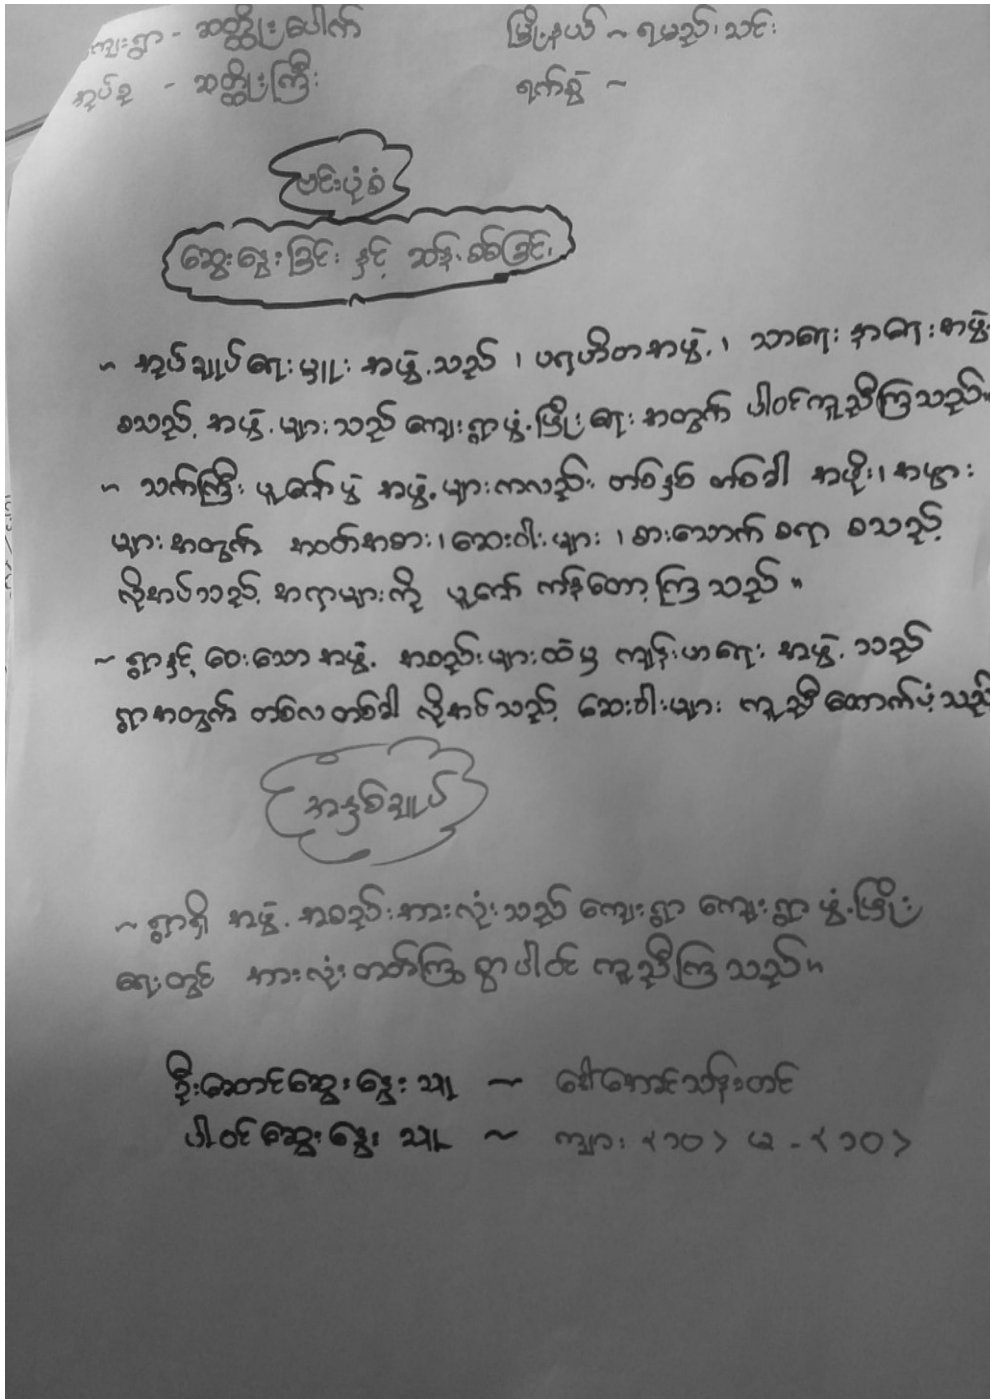 ကျေးရွာ - ဆတ္ထိုးပေါက် မြို့နယ် ~ ရမည်းသင်း
အုပ်စု - ဆတ္ထိုးကြီး ရက်စွဲ ~
ဗင်းပုံစံ
ဆွေးနွေးခြင်း နှင့် ဆန်းစစ်ခြင်း
~ အုပ်ချုပ်ရေးမှူး အဖွဲ့သည် ၊ ပရဟိတအဖွဲ့ ၊ သာရေး နာရေးအဖွဲ့
စသည့် အဖွဲ့များသည် ကျေးရွာဖွံ့ဖြိုးရေးအတွက် ပါဝင်ကူညီကြသည်။
~ သက်ကြီး ပူဇော်ပွဲ အဖွဲ့များကလည်း တစ်နှစ် တစ်ခါ အဖိုး၊ အဖွား
များအတွက် အဝတ်အစား ၊ ဆေးဝါးများ ၊ စားသောက်စရာ စသည့်
လိုအပ်သည့် အရာများကို ပူဇော် ကန်တော့ကြသည် ။
~ ရွာနှင့် ဝေးသော အဖွဲ့ အစည်းများထဲမှ ကျန်းမာရေး အဖွဲ့ သည်
ရွာအတွက် တစ်လတစ်ခါ လိုအပ်သည့် ဆေးဝါးများ ကူညီထောက်ပံ့သည်
အနှစ်ချုပ်
~ ရွာရှိ အဖွဲ့ အစည်းအားလုံးသည် ကျေးရွာ ကျေးရွာ ဖွံ့ဖြိုး
ရေးတွင် အားလုံးတတ်ကြွစွာပါဝင် ကူညီကြသည်။
ဦးဆောင်ဆွေးနွေးသူ ~ ဒေါ်အောင်သန်းတင်
ပါဝင်ဆွေးနွေးသူ ~ ကျား <၁၀> မ - <၁၀>